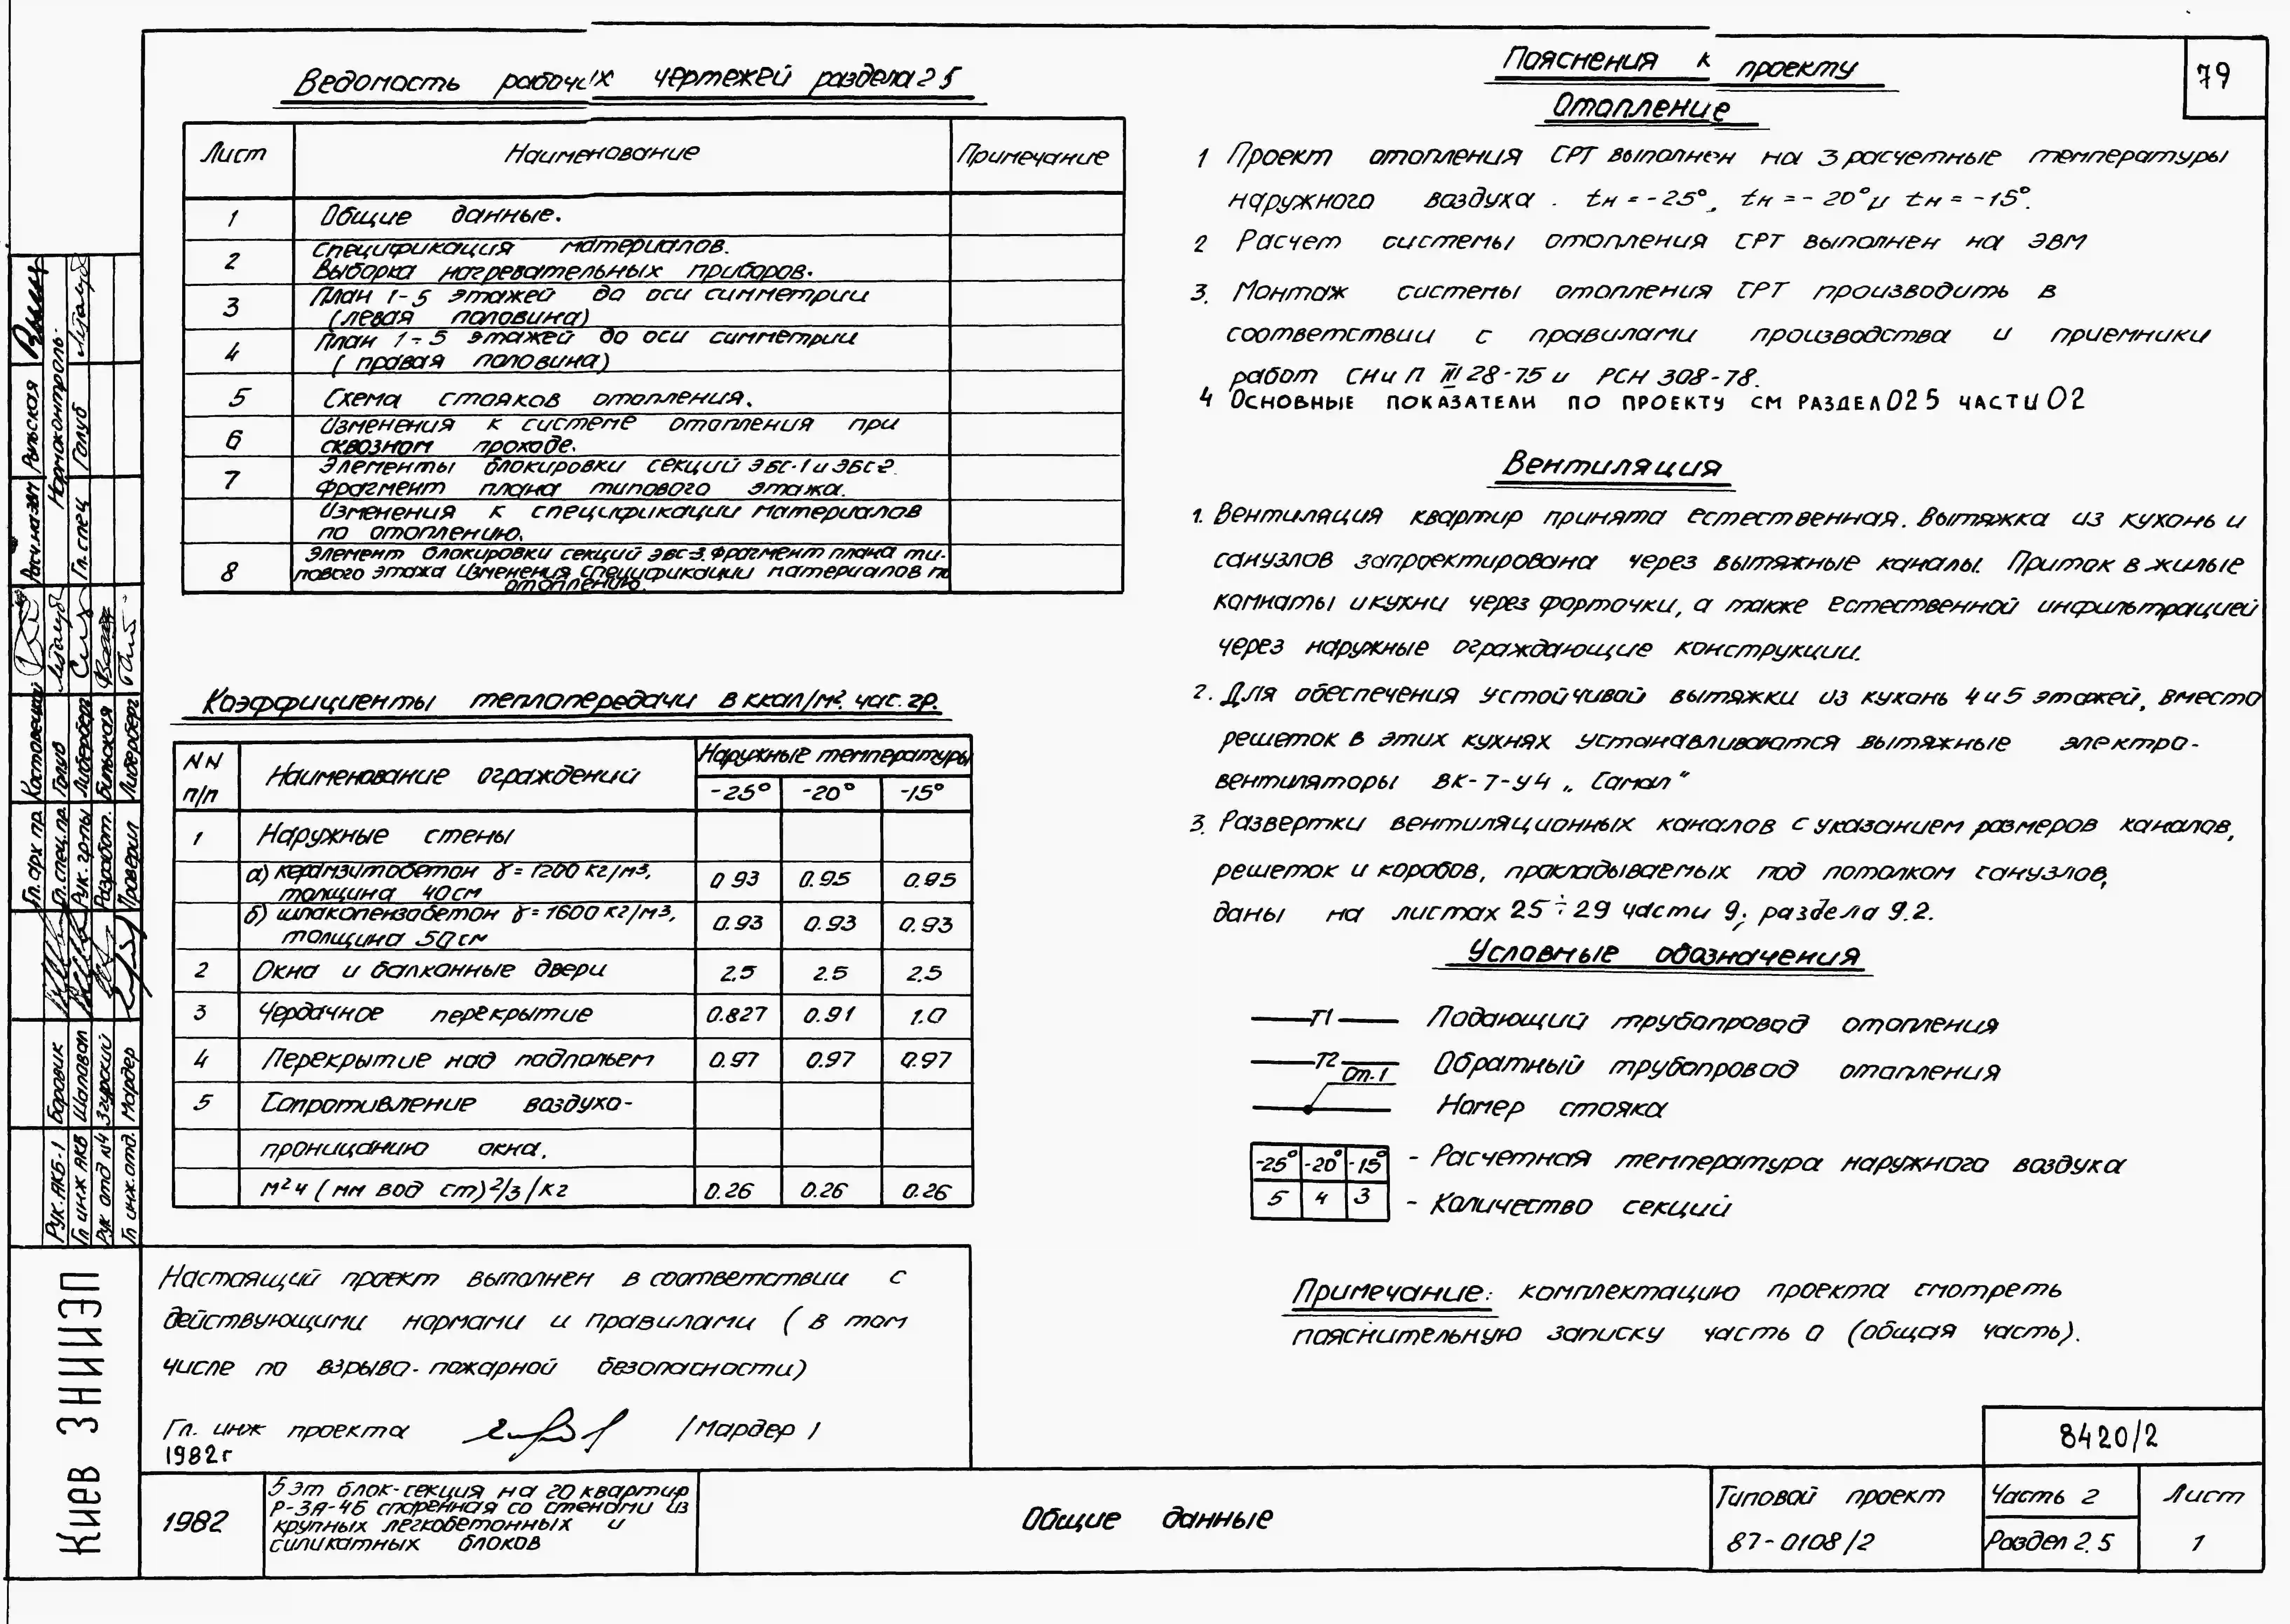 79
Ведомость рабочих чертежей раздела 2 5
Лист Наименование Примечание
1 Общие данные.
2 Спецификация материалов.
Выборка нагревательных приборов.
3 План 1-5 этажей до оси симметрии
(левая половина)
4 План 1÷5 этажей до оси симметрии
(правая половина)
5 Схема стояков отопления.
6 Изменения к системе отопления при
сквозном проходе.
7 Элементы блокировки секций ЭБС-1 и ЭБС-2.
Фрагмент плана типового этажа.
Изменения к спецификации материалов
по отоплению.
8 Элемент блокировки секций ЭБС-3. Фрагмент плана ти-
пового этажа Изменения спецификации материалов по
отоплению.
Коэффициенты теплопередачи в ккал/м². час. гр.
NN п/п Наименование ограждений Наружные температуры
-25° -20° -15°
1 Наружные стены
а) керамзитобетон γ = 1200 кг/м³,
толщина 40 см 0.93 0.95 0.95
б) шлакопензобетон γ = 1600 кг/м³,
толщина 50 см 0.93 0.93 0.93
2 Окна и балконные двери 2.5 2.5 2.5
3 Чердачное перекрытие 0.827 0.91 1.0
4 Перекрытие над подпольем 0.97 0.97 0.97
5 Сопротивление воздухо-
проницанию окна,
м²ч (мм вод ст)2/3/кг 0.26 0.26 0.26
Настоящий проект выполнен в соответствии с
действующими нормами и правилами (в том
числе по взрыво-пожарной безопасности)
Гл. инж проекта /Мардер/
1982 г
Пояснения к проекту
Отопление
1 Проект отопления СРТ выполнен на 3 расчетные температуры
наружного воздуха. tн = -25°, tн = -20° и tн = -15°.
2 Расчет системы отопления СРТ выполнен на ЭВМ
3. Монтаж системы отопления СРТ производить в
соответствии с правилами производства и приемники
работ СНиП III 28-75 и РСН 308-78.
4 Основные показатели по проекту см раздел 02 5 части 02
Вентиляция
1. Вентиляция квартир принята естественная. Вытяжка из кухонь и
санузлов запроектирована через вытяжные каналы. Приток в жилые
комнаты и кухни через форточки, а также естественной инфильтрацией
через наружные ограждающие конструкции.
2. Для обеспечения устойчивой вытяжки из кухонь 4 и 5 этажей, вместо
решеток в этих кухнях устанавливаются вытяжные электро-
вентиляторы ВК-7-У4 „Самал"
3. Развертки вентиляционных каналов с указанием размеров каналов,
решеток и коробов, прокладываемых под потолком санузлов,
даны на листах 25÷29 части 9; раздела 9.2.
Условные обозначения
Т1 Подающий трубопровод отопления
Т2 Обратный трубопровод отопления
Ст.1 Номер стояка
-25° -20° -15° - Расчетная температура наружного воздуха
5 4 3 - Количество секций
Примечание: комплектацию проекта смотреть
пояснительную записку часть 0 (общая часть).
8420/2
1982
5 эт блок-секция на 20 квартир
Р-3А-4Б спаренная со стенами из
крупных легкобетонных и
силикатных блоков
Общие данные
Типовой проект
87-0108/2
Часть 2
Раздел 2.5
Лист
1
Киев ЗНИИЭП
Рук. АКБ-1 Боровик
Гл инж АКБ Шаповал
Рук отд №4 Згурский
Гл инж. отд. Мардер
Гл. арх пр. Костовецкий
Гл. спец. пр. Голуб
Рук. гр-пы Либерберг
Разработ. Бильская
Проверил Либерберг
Расч. на ЭВМ Рыльская
Нормоконтроль
Гл. спец Голуб